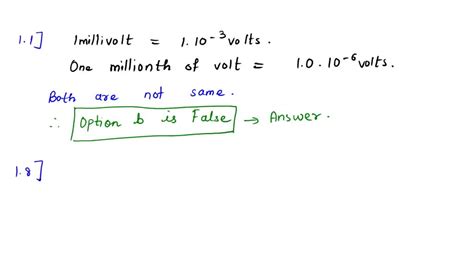 1.1] 1millivolt = 1.10⁻³volts.
One millionth of volt = 1.0.10⁻⁶volts.
Both are not same.
∴ Option b is False → Answer.
1.8]